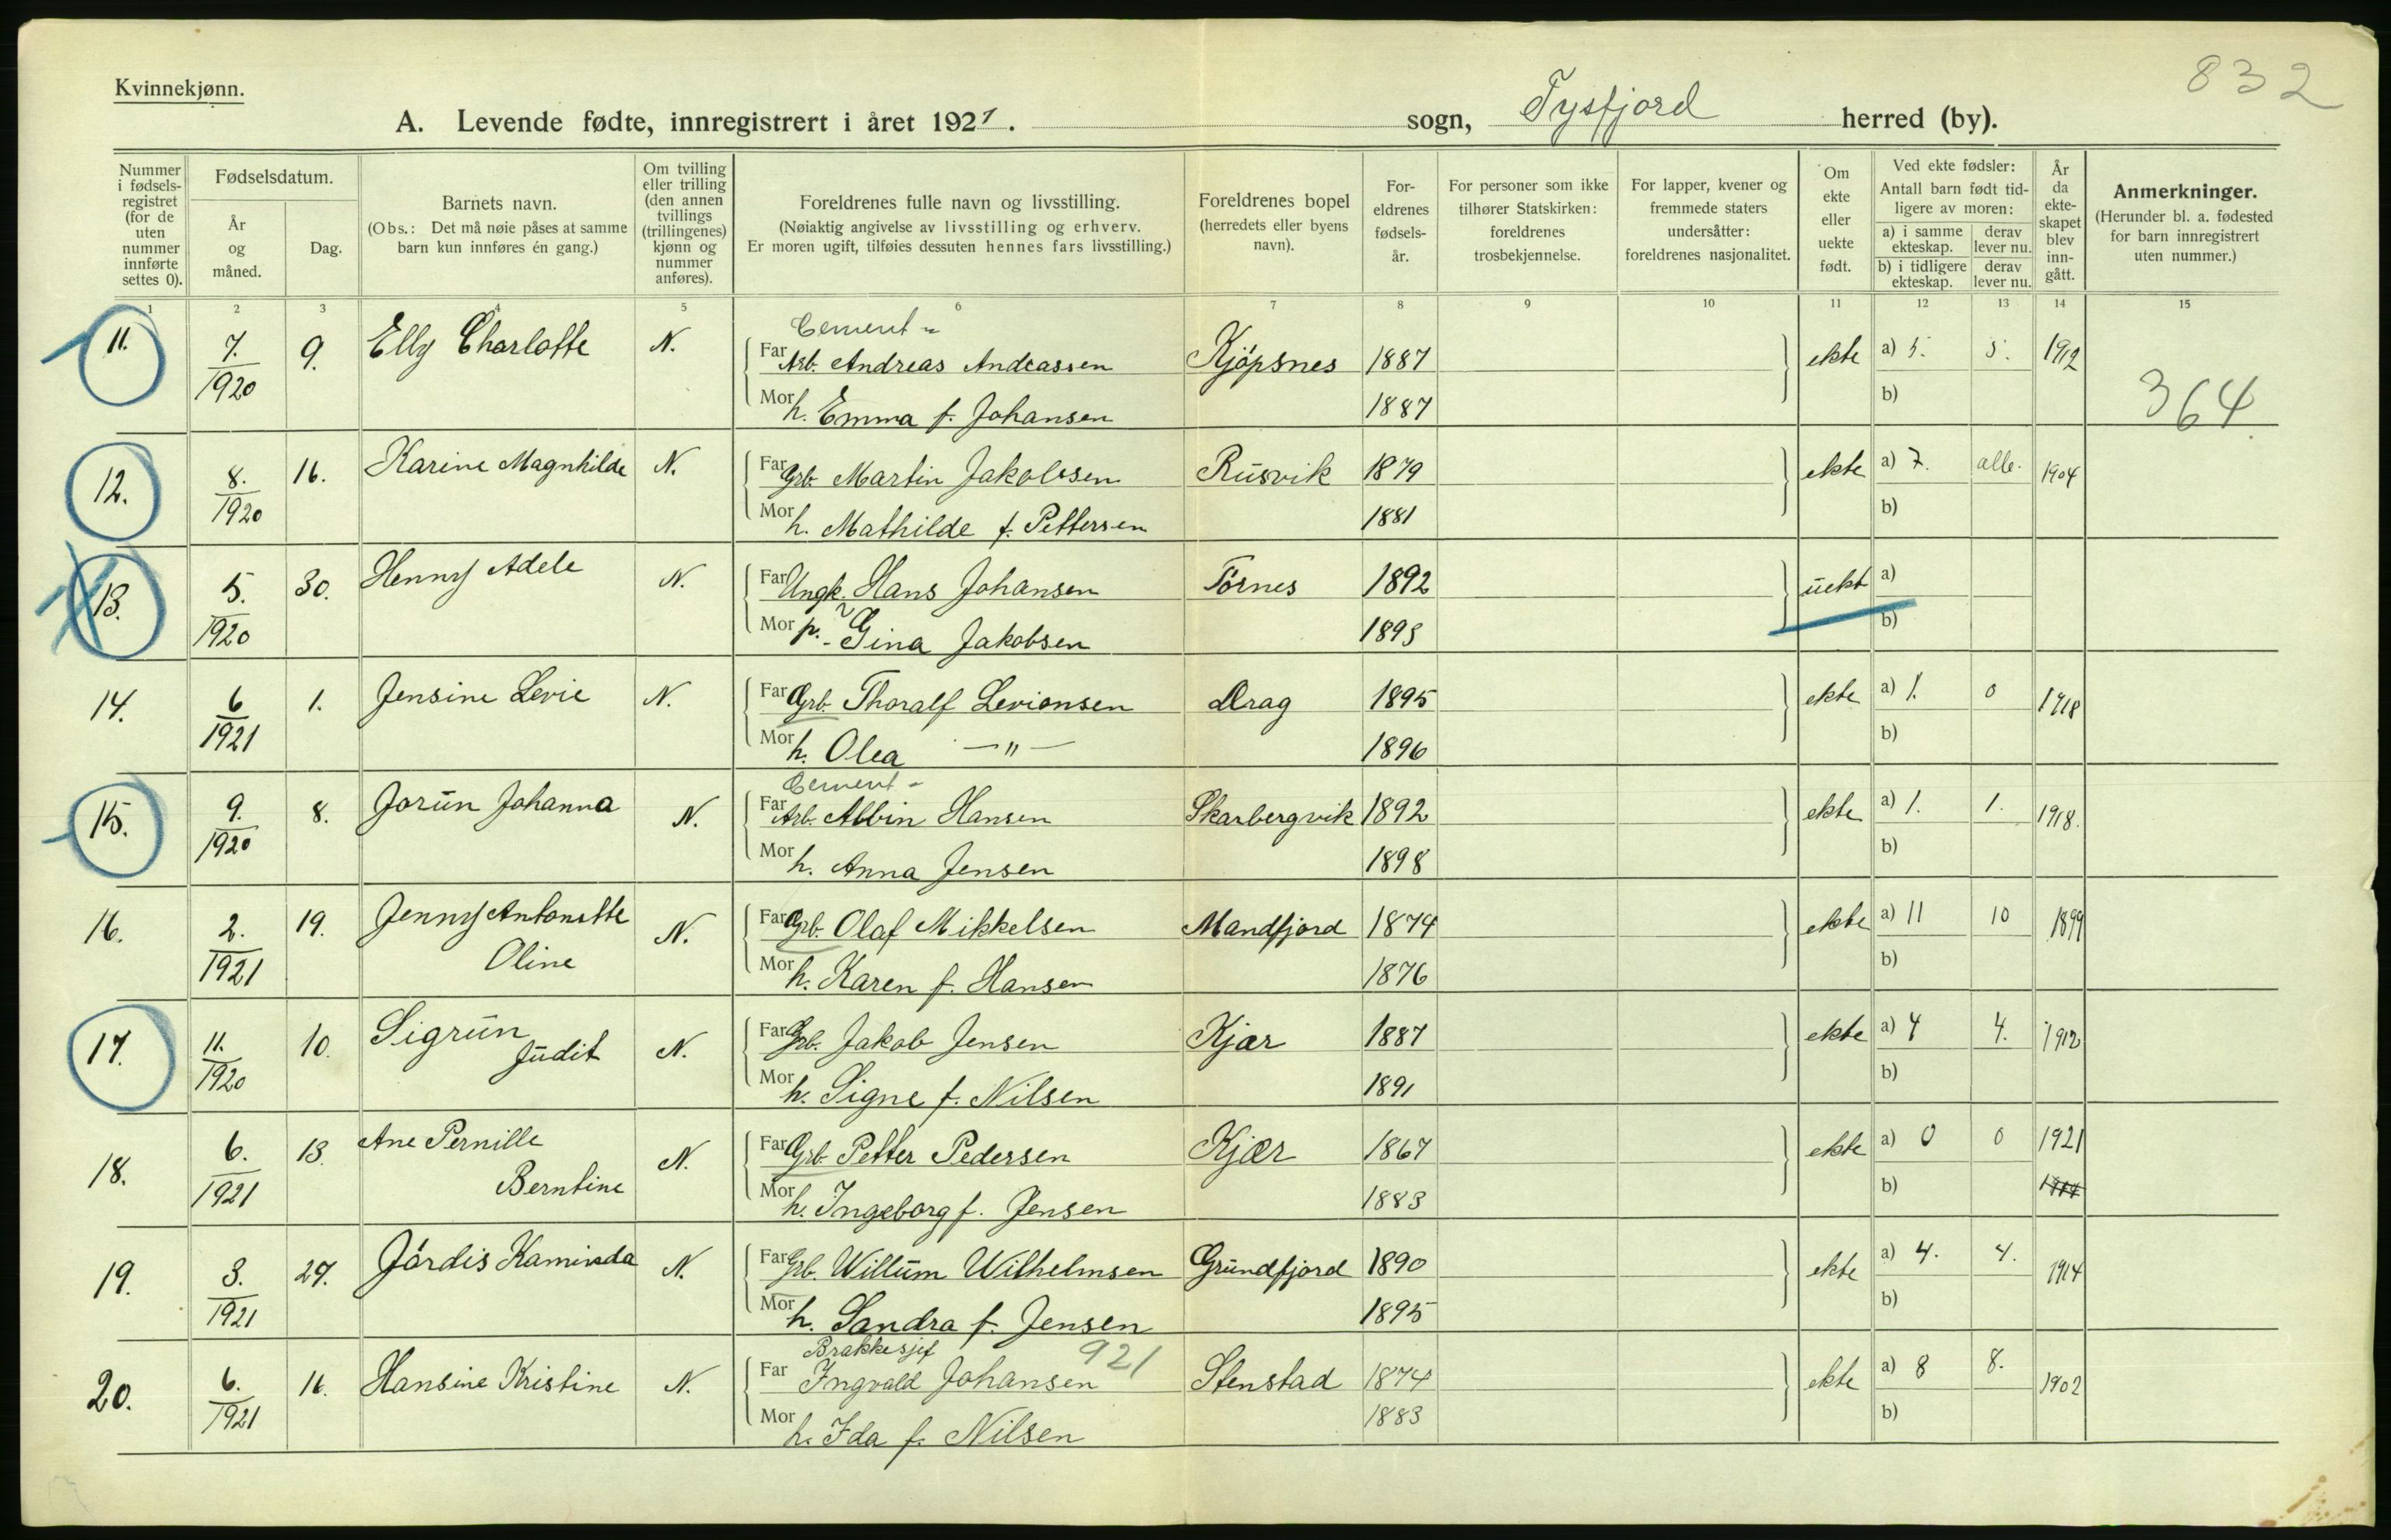 832
Kvinnekjønn.
A. Levende fødte, innregistrert i året 1921. sogn, Tysfjord herred (by).
Nummer i fødselsregistret (for de uten nummer innførte settes 0).
Fødselsdatum.
År og måned.
Dag.
Barnets navn.
(Obs.: Det må nøie påses at samme barn kun innføres én gang.)
Om tvilling eller trilling (den annen tvillings (trillingenes) kjønn og nummer anføres).
Foreldrenes fulle navn og livsstilling.
(Nøiaktig angivelse av livsstilling og erhverv.
Er moren ugift, tilføies dessuten hennes fars livsstilling.)
Foreldrenes bopel (herredets eller byens navn).
Foreldrenes fødselsår.
For personer som ikke tilhører Statskirken: foreldrenes trosbekjennelse.
For lapper, kvener og fremmede staters undersåtter: foreldrenes nasjonalitet.
Om ekte eller uekte født.
Ved ekte fødsler:
Antall barn født tidligere av moren:
a) i samme ekteskap. derav lever nu.
b) i tidligere ekteskap. derav lever nu.
År da ekteskapet blev inngått.
Anmerkninger.
(Herunder bl. a. fødested for barn innregistrert uten nummer.)
1 2 3 4 5 6 7 8 9 10 11 12 13 14 15
Cement-
11. 7. 1920 9. Elly Charlotte N. Far Arb. Andreas Andeassen Kjöpsnes 1887 ekte a) 5. 5. 1912
Mor h. Emma f. Johansen 1887 b) 364
12. 8. 1920 16. Karine Magnhilde N. Far Grb. Martin Jakobsen Rusvik 1879 ekte a) 7. alle. 1904
Mor h. Mathilde f. Pettersen 1881 b)
13. 5. 1920 30. Henny Adele N. Far Ungk. Hans Johansen Törnes 1892 uekt a)
Mor p. Gina Jakobsen 1893 b)
14. 6 1921 1. Jensine Levie N. Far Grb. Thoralf Levionsen Drag 1895 ekte a) 1. 0 1918
Mor h. Olea —"— 1896 b)
Cement-
15. 9. 1920 8. Jorun Johanna N. Far Arb. Albin Hansen Skarbergvik 1892 ekte a) 1. 1. 1918.
Mor h. Anna Jensen 1898 b)
16. 2. 1921 19. Jenny Antonette N. Far Grb. Olaf Mikkelsen Mandfjord 1874 ekte a) 11 10 1899
Oline Mor h. Karen f. Hansen 1876 b)
17. 11. 1920 10. Sigrun N. Far Grb. Jakob Jensen Kjær 1887 ekte a) 4 4. 1912
Judit Mor h. Signe f. Nilsen 1891 b)
18. 6. 1921 13. Ane Pernille N. Far Grb. Petter Pedersen Kjær 1867 ekte a) 0 0 1921
Berntine Mor h. Ingeborg f. Jensen 1883 b)
19. 3. 1921 27. Jördis Kaminda N. Far Grb. Willum Wilhelmsen Grundfjord 1890 ekte a) 4. 4. 1914
Mor h. Sandra f. Jensen 1895 b)
Brakkesjef 921
20. 6. 1921 16. Hansine Kristine N. Far Ingvald Johansen Stenstad 1874 ekte a) 8 8. 1902
Mor h. Ida f. Nilsen 1883 b)